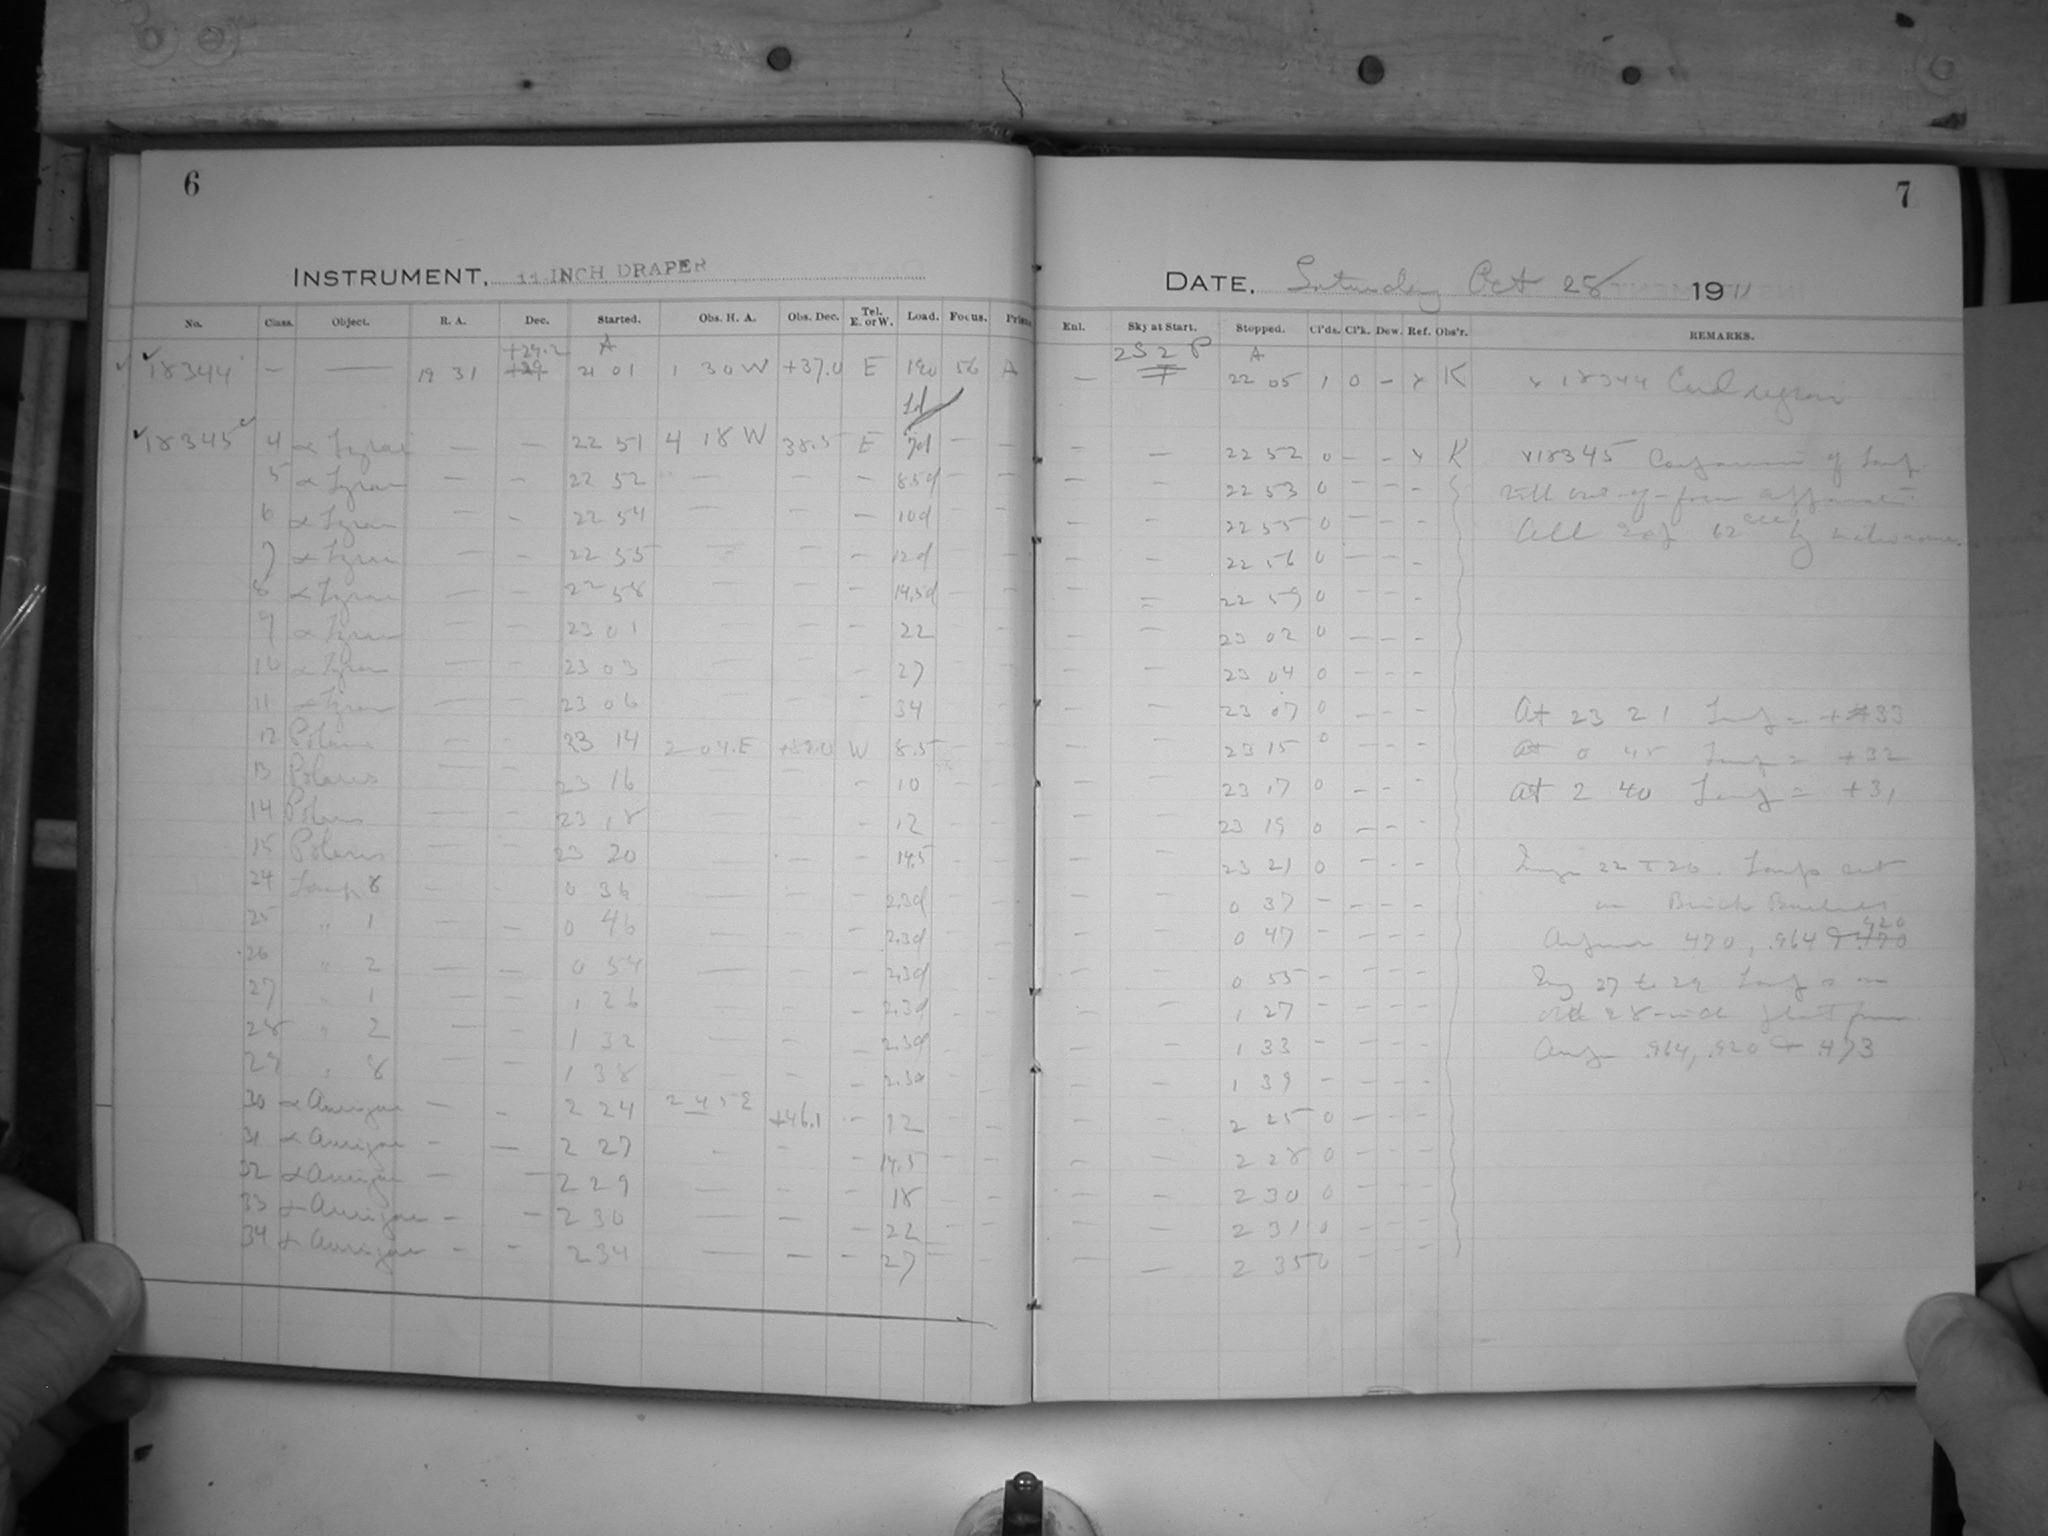 6
INSTRUMENT, 11 INCH DRAPER
No. Class. Object. R. A. Dec. Started. Obs. H. A. Obs. Dec. Tel. E. or W. Load. Focus. Prism
+29.2 A
18344 — — 19 31 +29 21 01 1 30 W +37.0 E 190 56 A
1d
18345 4 α Lyrae — — 22 51 4 18 W 38.5 E 7d — —
5 α Lyrae — — 22 52 — — — 8.5d — —
6 α Lyrae — — 22 54 — — — 10d — —
7 α Lyrae — — 22 55 — — — 12d — —
8 α Lyrae — — 22 58 — — — 14.5d — —
9 α Lyrae — — 23 01 — — — 22 — —
10 α Lyrae — — 23 03 — — — 27 — —
11 α Lyrae — — 23 06 — — — 34 — —
12 Polaris — — 23 14 2 04 E W 8.5 — —
13 Polaris — — 23 16 — — — 10 — —
14 Polaris — — 23 18 — — — 12 — —
15 Polaris — — 23 20 — — — 14.5 — —
24 Lamp 8 — — 0 36 — — — 2.3d — —
25 " 1 — — 0 46 — — — 2.3d — —
26 " 2 — — 0 54 — — — 2.3d — —
27 " 1 — — 1 26 — — — 2.3d — —
28 " 2 — — 1 32 — — — 2.3d — —
29 " 8 — — 1 38 — — — 2.3d — —
30 α Aurigae — — 2 24 2 45 E +46.1 — 12 — —
31 α Aurigae — — 2 27 — — — 14.5 — —
32 α Aurigae — — 2 29 — — — 18 — —
33 α Aurigae — — 2 30 — — — 22 — —
34 α Aurigae — — 2 34 — — — 27 — —
7
DATE, Saturday Oct 28 1911
Enl. Sky at Start. Stopped. Cl'ds. Cl'k. Dew. Ref. Obs'r. REMARKS.
2S 2 P A
— F 22 05 1 0 — x K x 18344 Cent region
— — 22 52 0 — — x K x18345 Comparison of Lamp
— — 22 53 0 — — — with out-of-focus
— — 22 55 0 — — — All
— — 22 56 0 — — —
— = 22 59 0 — — —
— — 23 02 0 — — —
— — 23 04 0 — — —
— — 23 07 0 — — — At 23 21 Temp = +33
— — 23 15 0 — — — At 0 45 Temp = +32
— — 23 17 0 — — — At 2 40 Temp = +31
— — 23 19 0 — — —
— — 23 21 0 — — — Lamp set
— — 0 37 — — — — on
— — 0 47 — — — — 470, .964 & .920
— — 0 55 — — — — 27 to 29 Lamp
— — 1 27 — — — — old
— — 1 33 — — — — .964, .920 & .473
— — 1 39 — — — —
— — 2 25 0 — — —
— — 2 28 0 — — —
— — 2 30 0 — — —
— — 2 31 0 — — —
— — 2 35 0 — — —